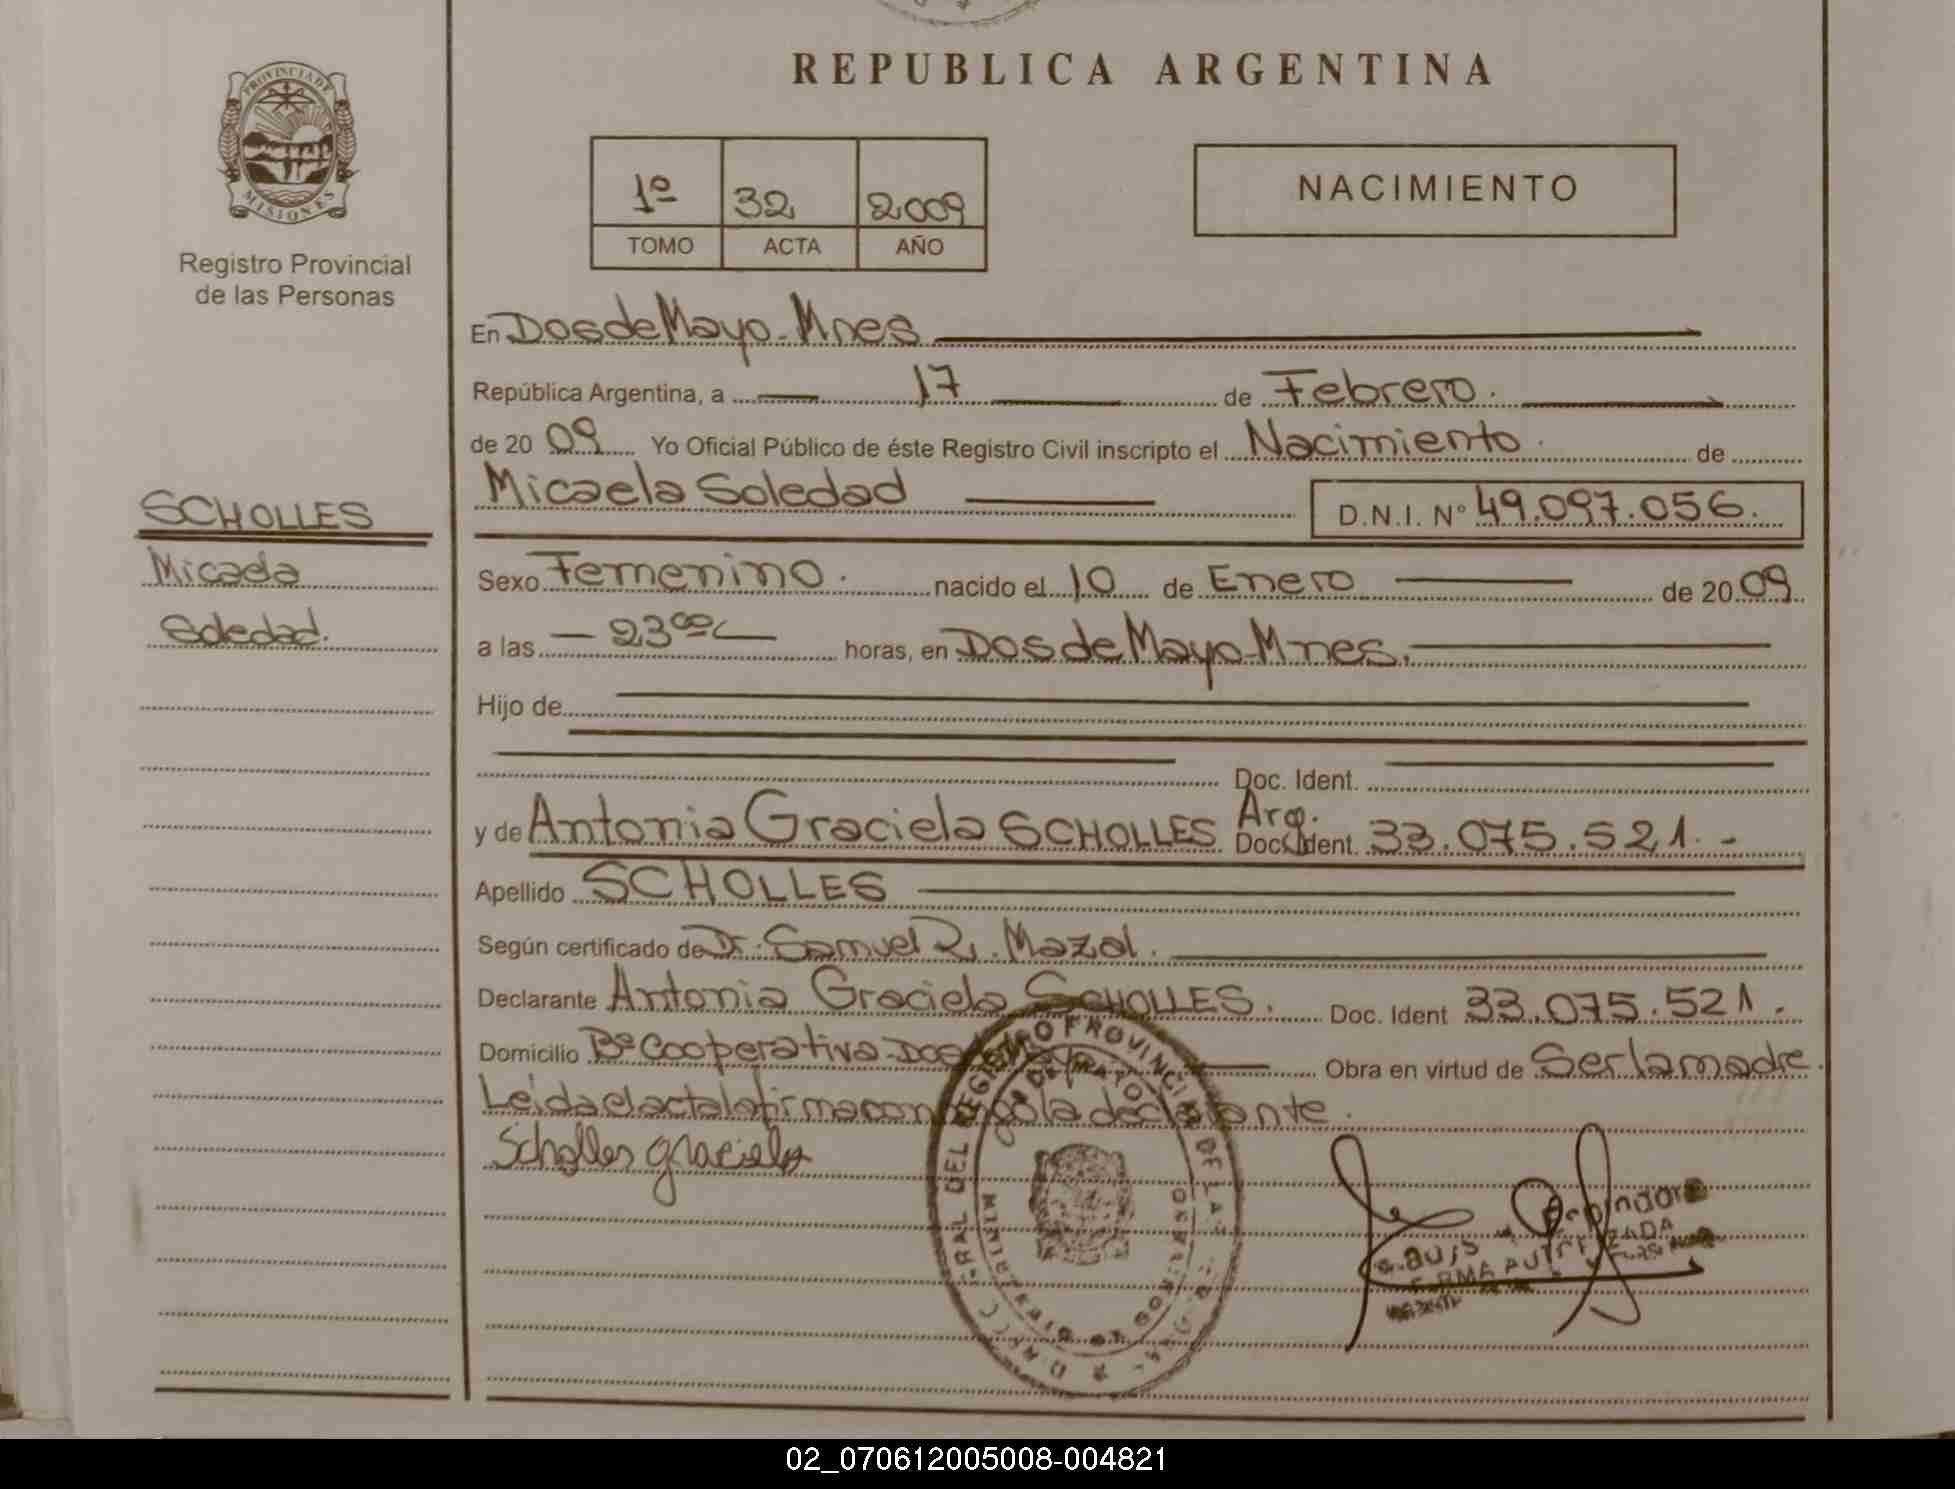 PROVINCIA DE
MISIONES
Registro Provincial
de las Personas
SCHOLLES
Micaela
Soledad.
REPUBLICA ARGENTINA
1º 32 2009
TOMO ACTA AÑO
NACIMIENTO
En Dos de Mayo - Mnes
República Argentina, a 17 de Febrero.
de 20 09 Yo Oficial Público de éste Registro Civil inscripto el Nacimiento de
Micaela Soledad D.N.I. Nº 49.097.056.
Sexo Femenino. nacido el 10 de Enero de 20 09
a las 23 00 horas, en Dos de Mayo - Mnes.
Hijo de
Doc. Ident.
y de Antonia Graciela SCHOLLES Arg. Doc. Ident. 33.075.521.-
Apellido SCHOLLES
Según certificado de Dr. Samuel R. Mazal.
Declarante Antonia Graciela SCHOLLES. Doc. Ident 33.075.521.
Domicilio Bº Cooperativa - Dos de Mayo Obra en virtud de Ser la madre.
Leída el acta la firma conmigo la declarante.
Scholles graciela
02_070612005008-004821